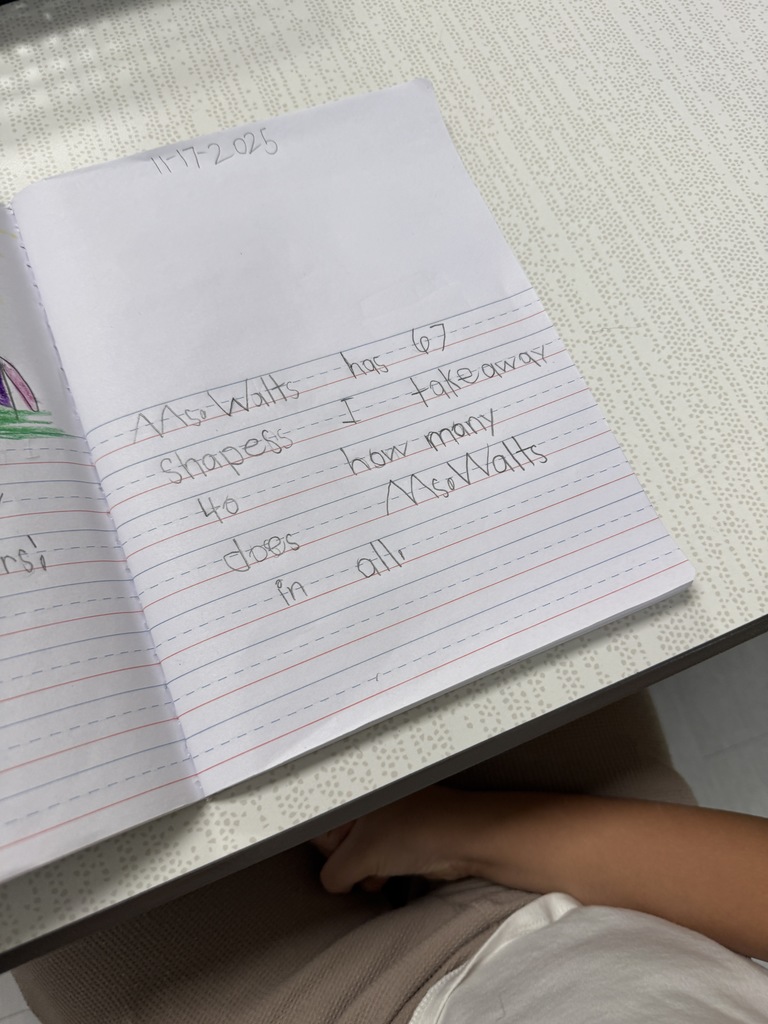 11-17-2025
Ms. Watts has 67
shapess I takeaway
40 how many
does Ms. Watts
in all.
rs!